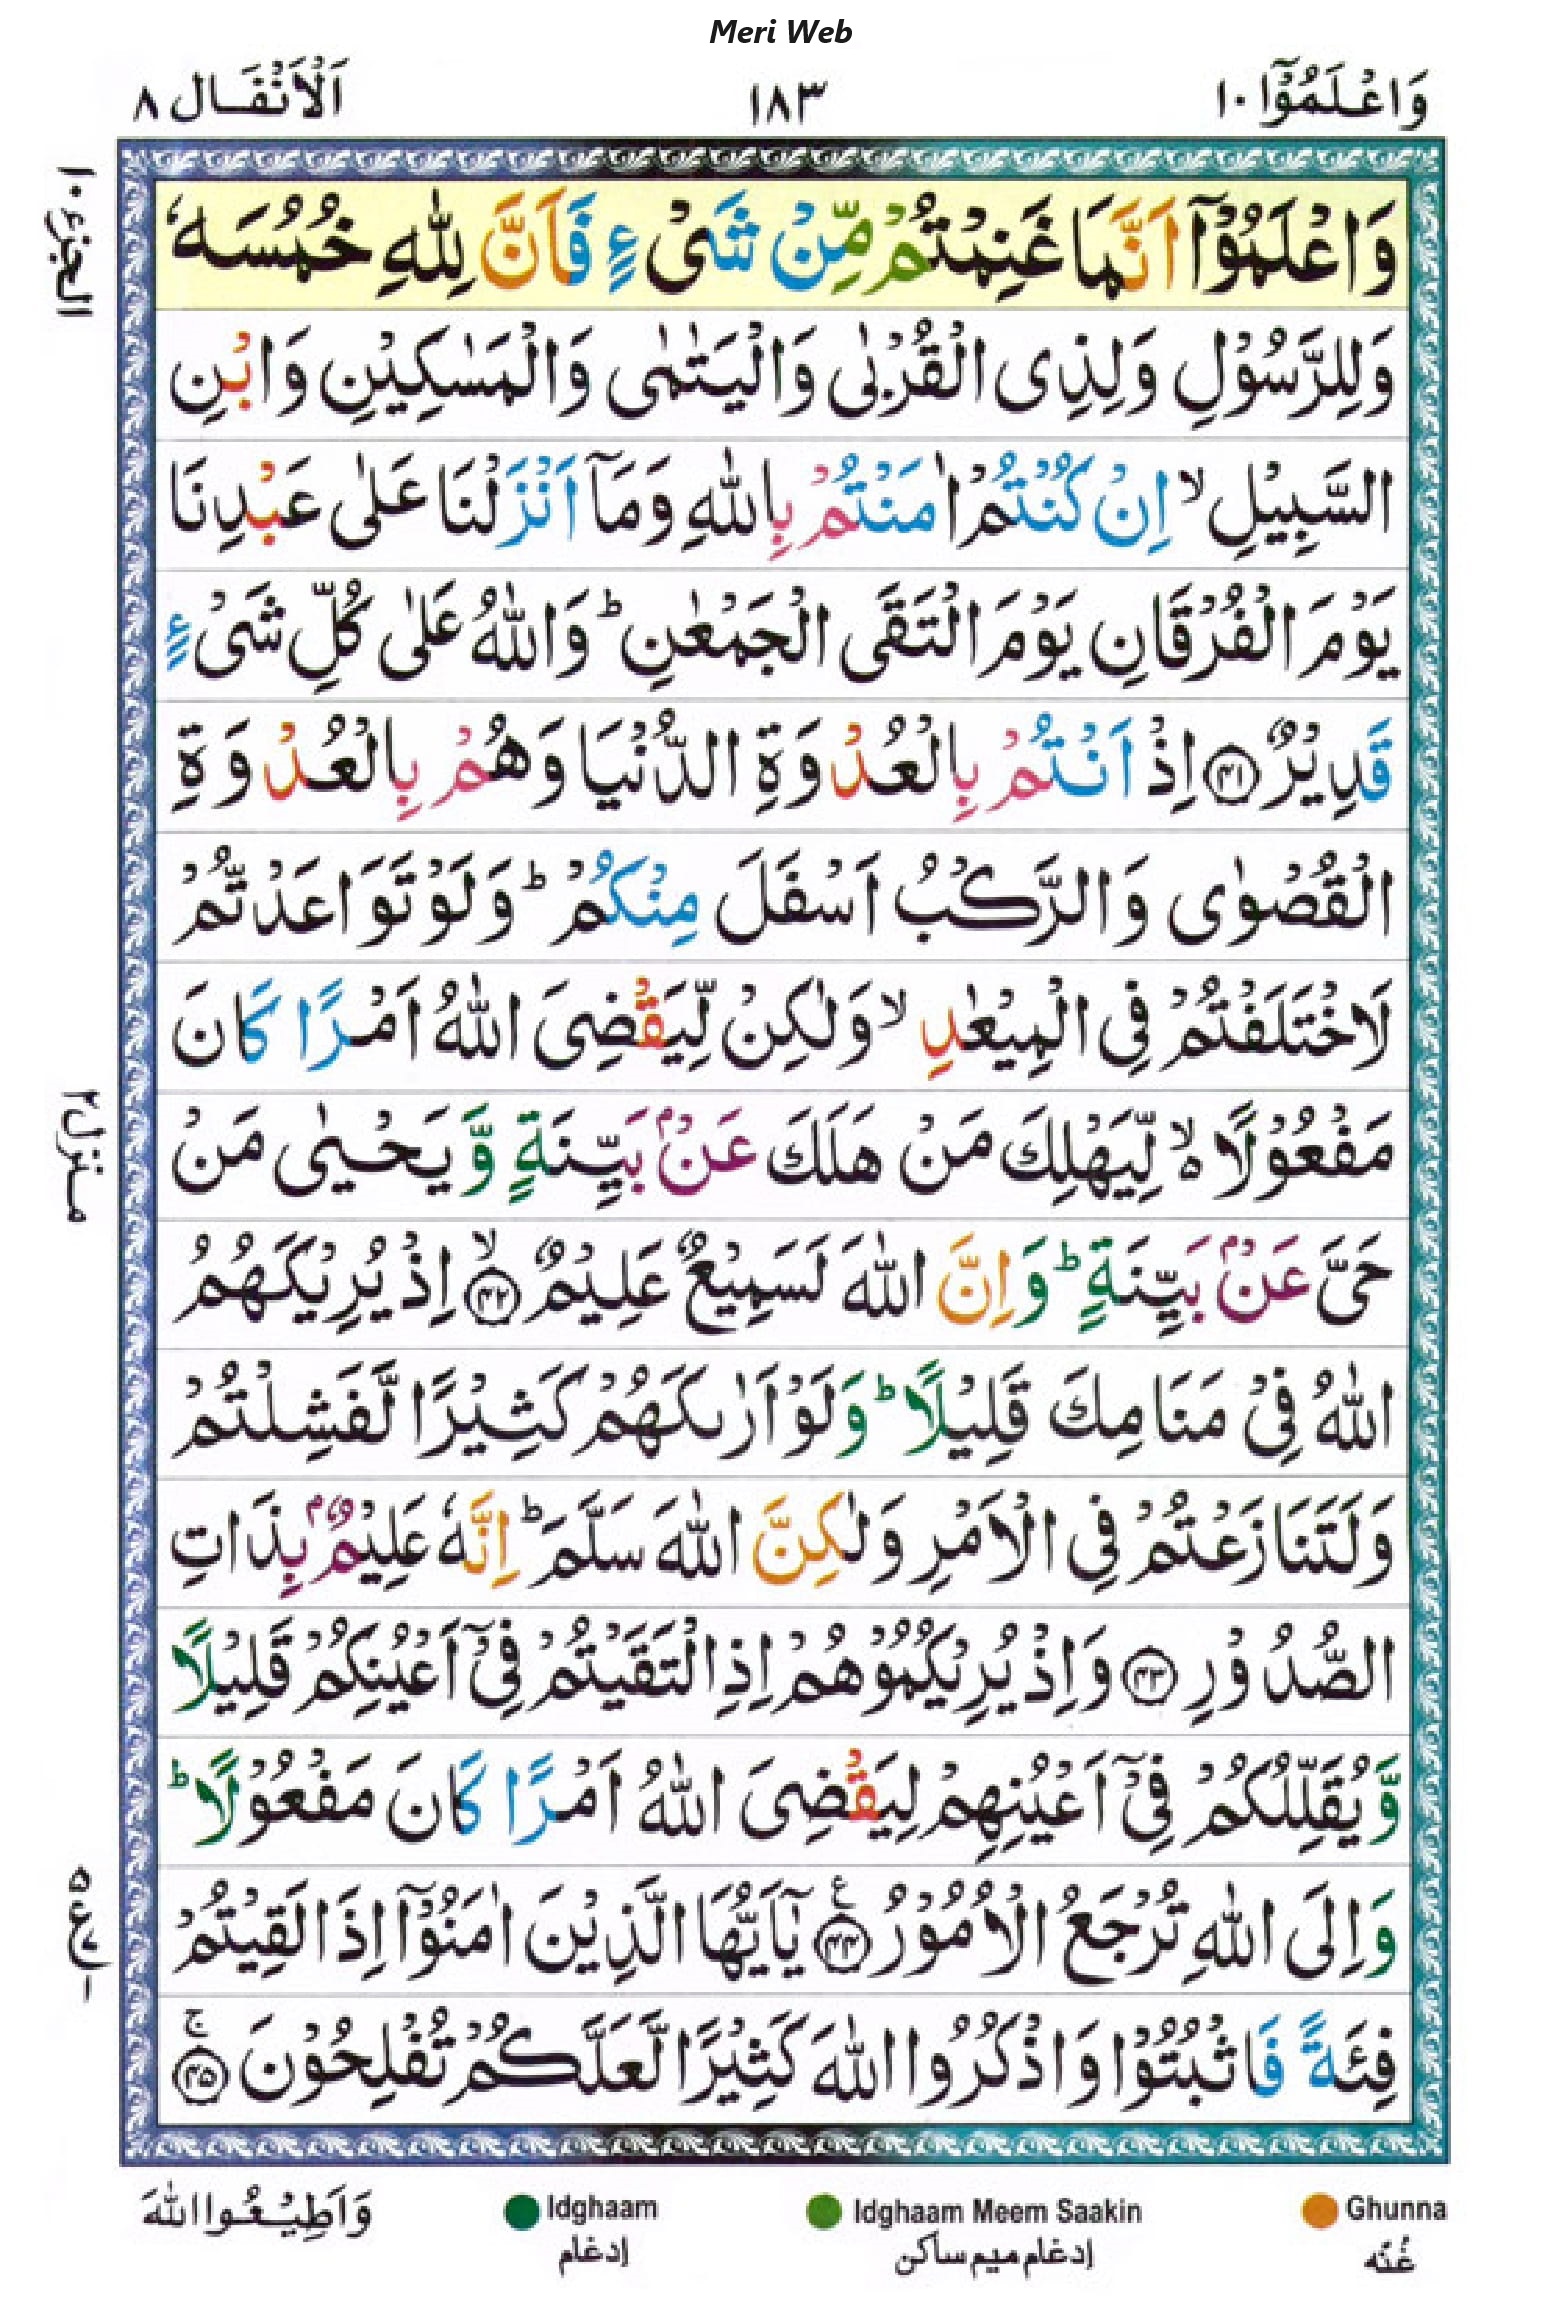 Meri Web
وَاعْلَمُوْٓا ١٠
١٨٣
اَلْاَنْفَال ٨
الجزء ١٠
وَاعْلَمُوْٓا اَنَّمَا غَنِمْتُمْ مِّنْ شَیْءٍ فَاَنَّ لِلّٰهِ خُمُسَهٗ
وَلِلرَّسُوْلِ وَلِذِی الْقُرْبٰی وَالْیَتٰمٰی وَالْمَسٰكِیْنِ وَابْنِ
السَّبِیْلِ ۙ اِنْ كُنْتُمْ اٰمَنْتُمْ بِاللّٰهِ وَمَآ اَنْزَلْنَا عَلٰی عَبْدِنَا
یَوْمَ الْفُرْقَانِ یَوْمَ الْتَقَی الْجَمْعٰنِ ؕ وَاللّٰهُ عَلٰی كُلِّ شَیْءٍ
قَدِیْرٌ ﴿۴۱﴾ اِذْ اَنْتُمْ بِالْعُدْوَةِ الدُّنْیَا وَهُمْ بِالْعُدْوَةِ
الْقُصْوٰی وَالرَّكْبُ اَسْفَلَ مِنْكُمْ ؕ وَلَوْ تَوَاعَدْتُّمْ
لَاخْتَلَفْتُمْ فِی الْمِیْعٰدِ ۙ وَلٰكِنْ لِّیَقْضِیَ اللّٰهُ اَمْرًا كَانَ
مَفْعُوْلًا ۬ۙ لِّیَهْلِكَ مَنْ هَلَكَ عَنْۢ بَیِّنَةٍ وَّیَحْیٰی مَنْ
حَیَّ عَنْۢ بَیِّنَةٍ ؕ وَاِنَّ اللّٰهَ لَسَمِیْعٌ عَلِیْمٌ ﴿ۙ۴۲﴾ اِذْ یُرِیْكَهُمُ
اللّٰهُ فِیْ مَنَامِكَ قَلِیْلًا ؕ وَلَوْ اَرٰىكَهُمْ كَثِیْرًا لَّفَشِلْتُمْ
وَلَتَنَازَعْتُمْ فِی الْاَمْرِ وَلٰكِنَّ اللّٰهَ سَلَّمَ ؕ اِنَّهٗ عَلِیْمٌۢ بِذَاتِ
الصُّدُوْرِ ﴿۴۳﴾ وَاِذْ یُرِیْكُمُوْهُمْ اِذِ الْتَقَیْتُمْ فِیْۤ اَعْیُنِكُمْ قَلِیْلًا
وَّیُقَلِّلُكُمْ فِیْۤ اَعْیُنِهِمْ لِیَقْضِیَ اللّٰهُ اَمْرًا كَانَ مَفْعُوْلًا ؕ
وَاِلَی اللّٰهِ تُرْجَعُ الْاُمُوْرُ ﴿۴۴﴾ ع یٰۤاَیُّهَا الَّذِیْنَ اٰمَنُوْۤا اِذَا لَقِیْتُمْ
فِئَةً فَاثْبُتُوْا وَاذْكُرُوا اللّٰهَ كَثِیْرًا لَّعَلَّكُمْ تُفْلِحُوْنَ ﴿ۚ۴۵﴾
منزل ٢
Ghunna
غُنّه
Idghaam Meem Saakin
إدغام ميم ساكن
Idghaam
إدغام
وَاَطِیْعُوا اللّٰهَ